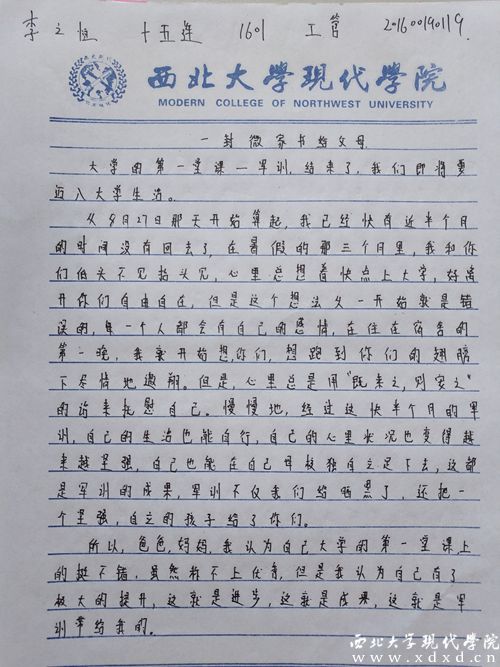 李之恒 十五连 1601 工管 201600190119.
西北大学现代学院
MODERN COLLEGE OF NORTHWEST UNIVERSITY
一封微家书给父母
大学的第一堂课—军训,结束了,我们即将要
迈入大学生活。
从8月27日那天开始算起,我已经快有近半个月
的时间没有回去了,在暑假的那三个月里,我和你
们低头不见抬头见,心里总想着快点上大学,好离
开你们自由自在,但是这个想法从一开始就是错
误的,每一个人都会有自己的感情,在住在宿舍的
第一晚,我就开始想你们,想跑到你们的翅膀
下尽情地遨翔。但是,心里总是用“既来之,则安之”
的话来抚慰自己。慢慢地,经过这快半个月的军
训,自己的生活也能自行,自己的心里状况也变得越
来越坚强,自己也能在自己母校独自立足下去,这都
是军训的成果,军训不仅我们给晒黑了,还把一
个坚强,自立的孩子给了你们。
所以,爸爸,妈妈,我认为自己大学的第一堂课上
的挺不错,虽然称不上优秀,但是我认为自己有了
极大的提升,这就是进步,这就是成果,这就是军
训带给我的。
西北大学现代学院
www.xdxd.cn